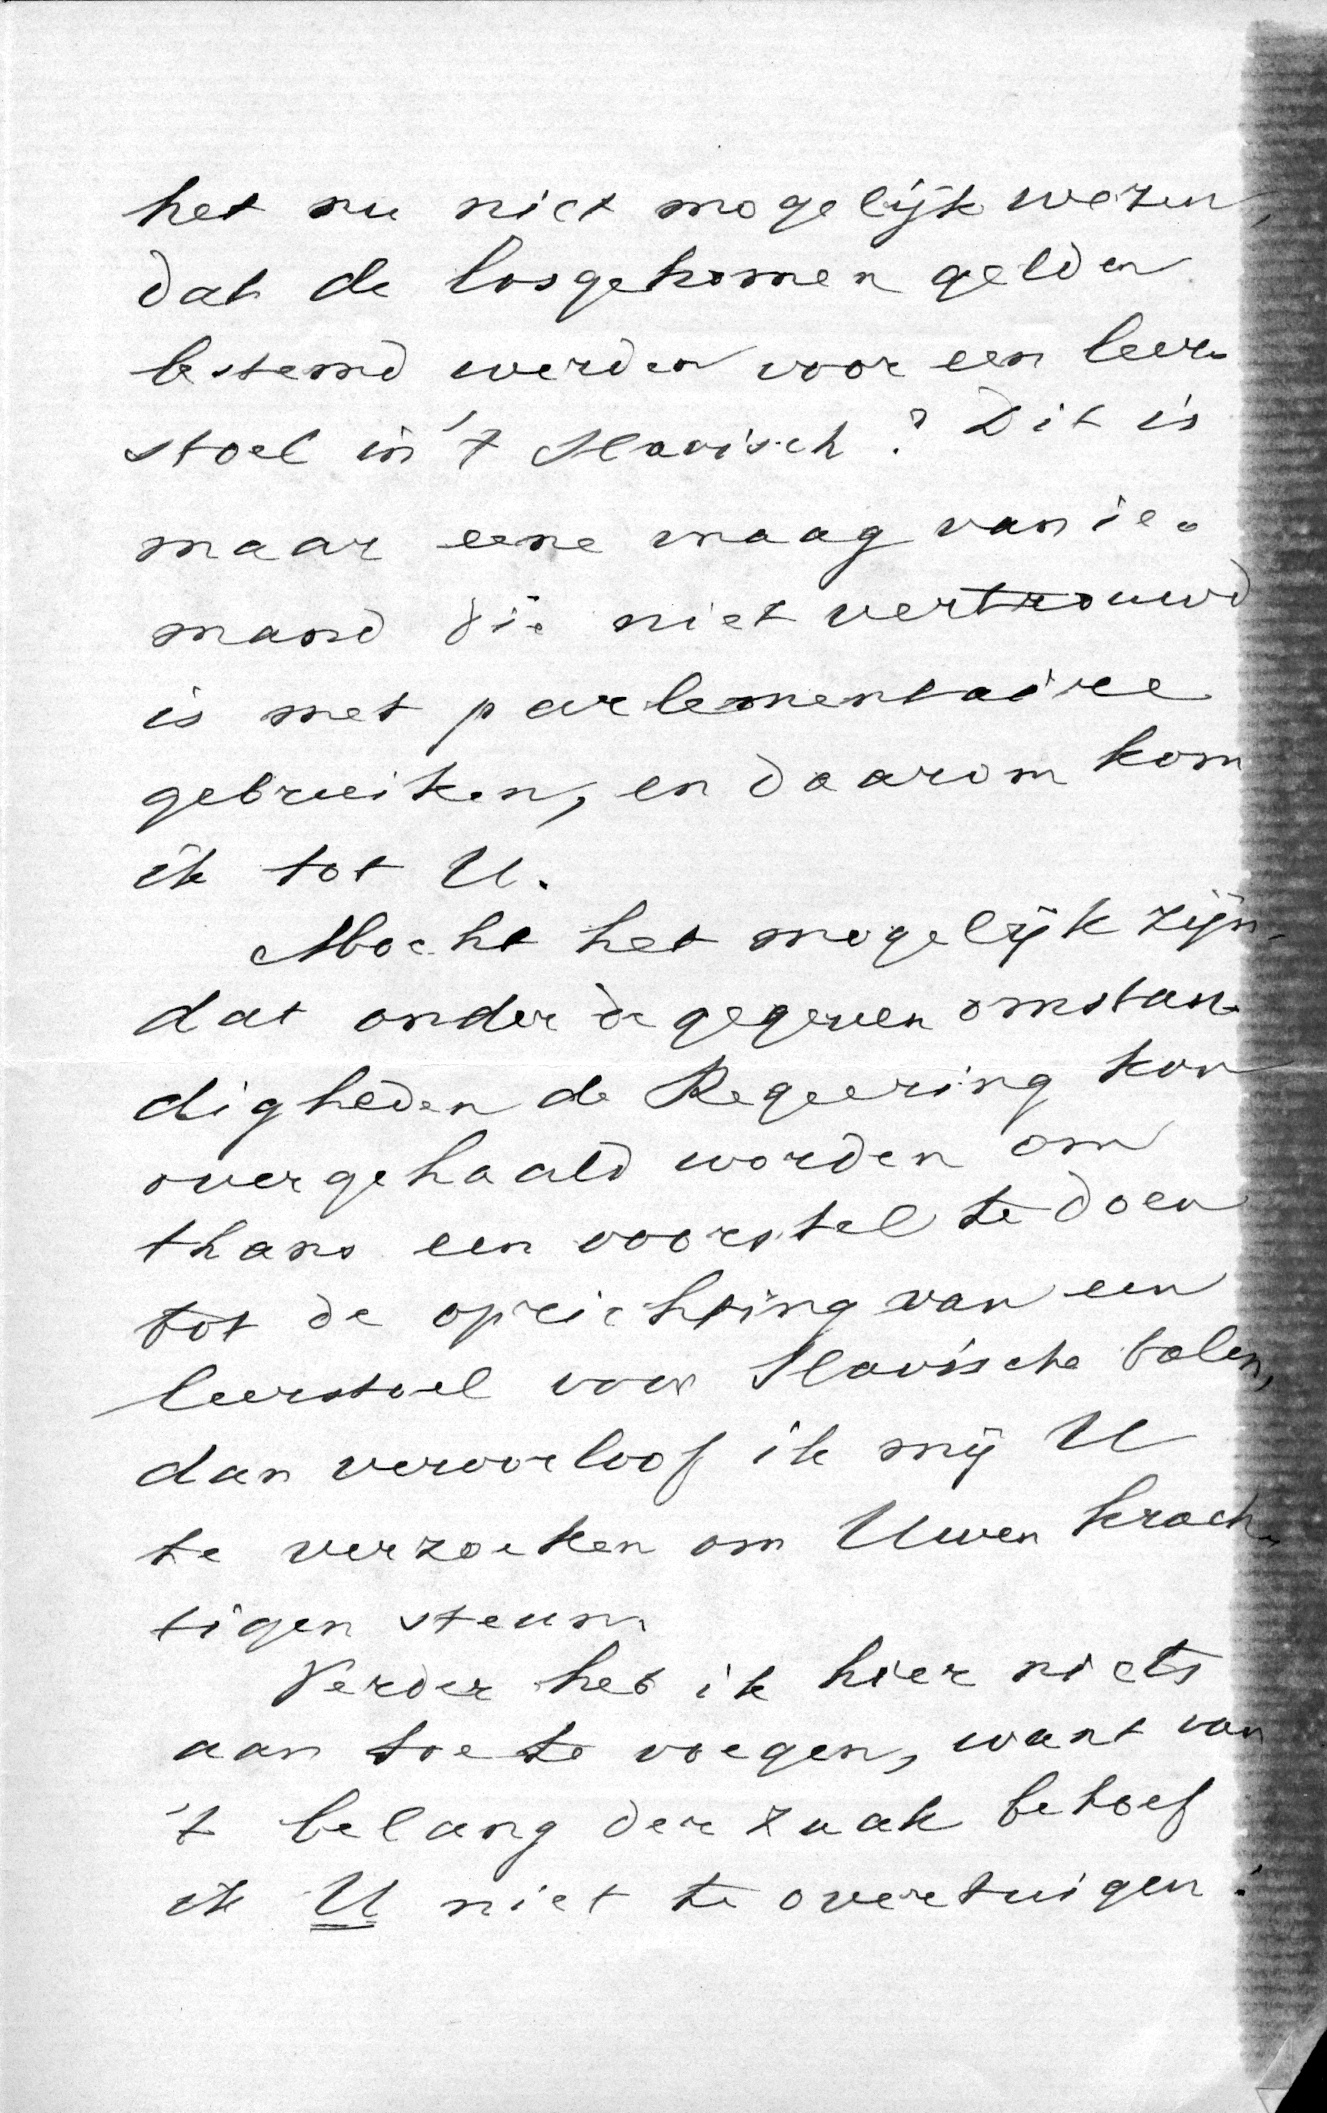 het nu niet mogelijk wezen,
dat de losgekomen gelden
bestemd werden voor een leer-
stoel in 't Slavisch? Dit is
maar eene vraag van ie-
mand die niet vertrouwd
is met parlementaire
gebruiken, en daarom kom
ik tot U.
Mocht het mogelijk zijn
dat onder de gegeven omstan-
digheden de Regeering kon
overgehaald worden om
thans een voorstel te doen
tot de oprichting van een
leerstoel voor Slavische talen,
dan veroorloof ik mij U
te verzoeken om Uwen krach-
tigen steun.
Verder heb ik hier niets
aan toe te voegen, want van
't belang der zaak behoef
ik U niet te overtuigen!